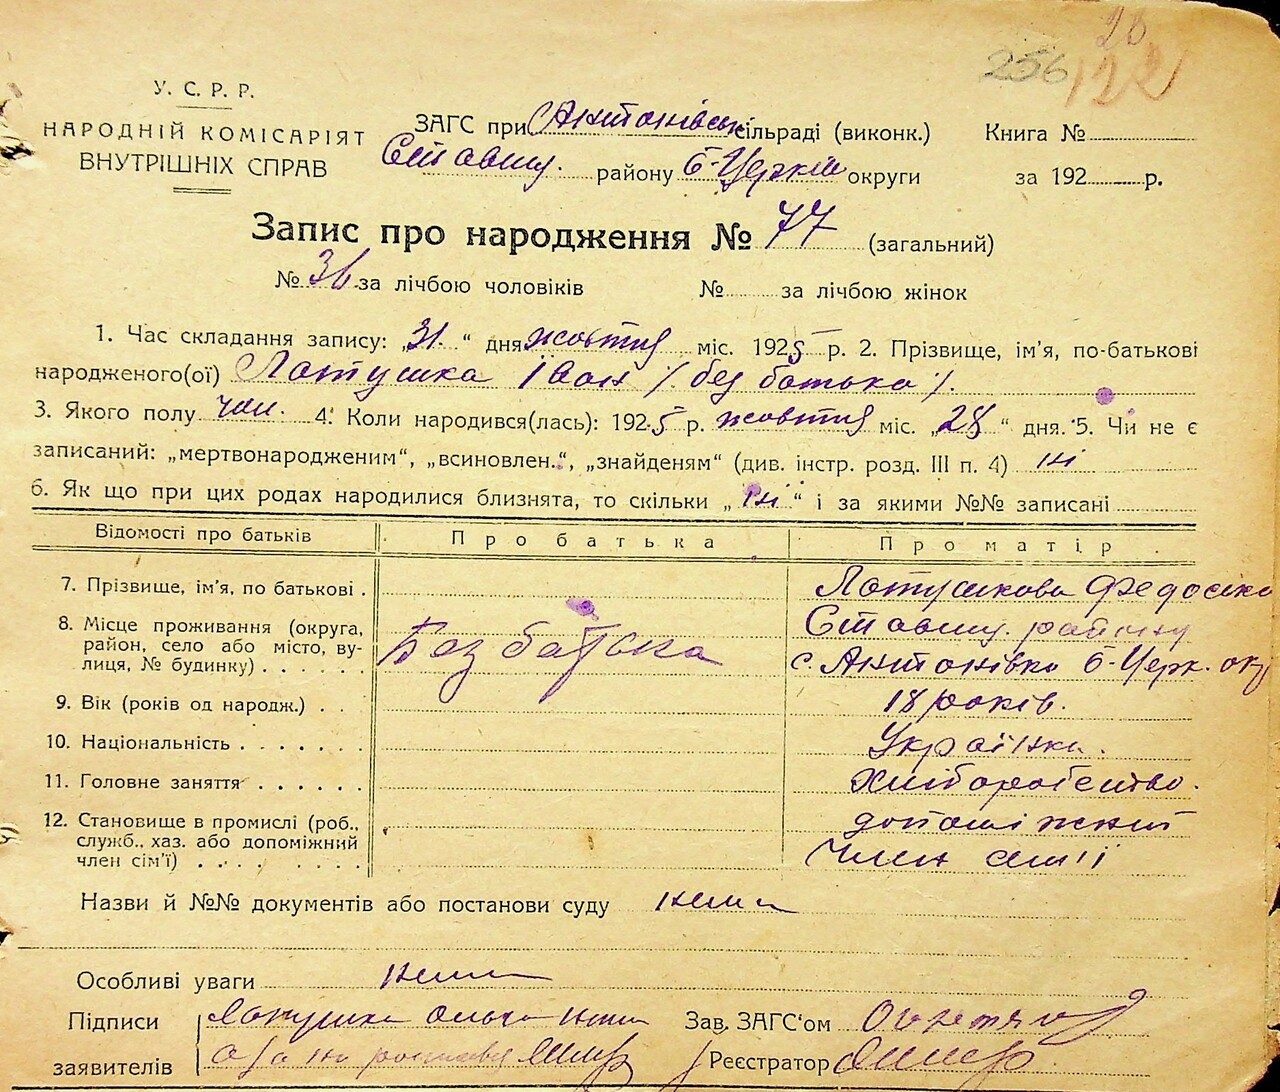 28
256 122
У. С. Р. Р.
НАРОДНІЙ КОМІСАРІЯТ
ВНУТРІШНІХ СПРАВ
ЗАГС при Антонівськ сільраді (виконк.)
Ставищ. району Б-Церків округи
Книга №
за 192 р.
Запис про народження № 77 (загальний)
№ 36 за лічбою чоловіків № за лічбою жінок
1. Час складання запису: „31“ дня жовтня міс. 1925 р. 2. Прізвище, ім'я, по-батькові
народженого(ої) Лотушка Іван /без батька/.
3. Якого полу чол. 4. Коли народився(лась): 1925 р. жовтня міс. „28“ дня. 5. Чи не є
записаний: „мертвонародженим“, „всиновлен.“, „знайденям“ (див. інстр. розд. III п. 4) ні
6. Як що при цих родах народилися близнята, то скільки „ні“ і за якими №№ записані
Відомості про батьків Про батька Про матір
7. Прізвище, ім'я, по батькові . Лотушкова Федосіка
8. Місце проживання (округа, район, село або місто, вулиця, № будинку) . . . . . Без батька Ставищ. району
с. Антонівка Б-Церк. окр
9. Вік (років од народж.) . . 18 років.
10. Національність . . . . . . . Українка.
11. Головне заняття . . . . . . Хліборобство.
12. Становище в промислі (роб., служб., хаз. або допоміжний член сім'ї) . . . . . допоміжний
член сем'ї
Назви й №№ документів або постанови суду нема
Особливі уваги нема
Підписи Лотушка Ольга Зав. ЗАГС'ом
заявителів Реєстратор